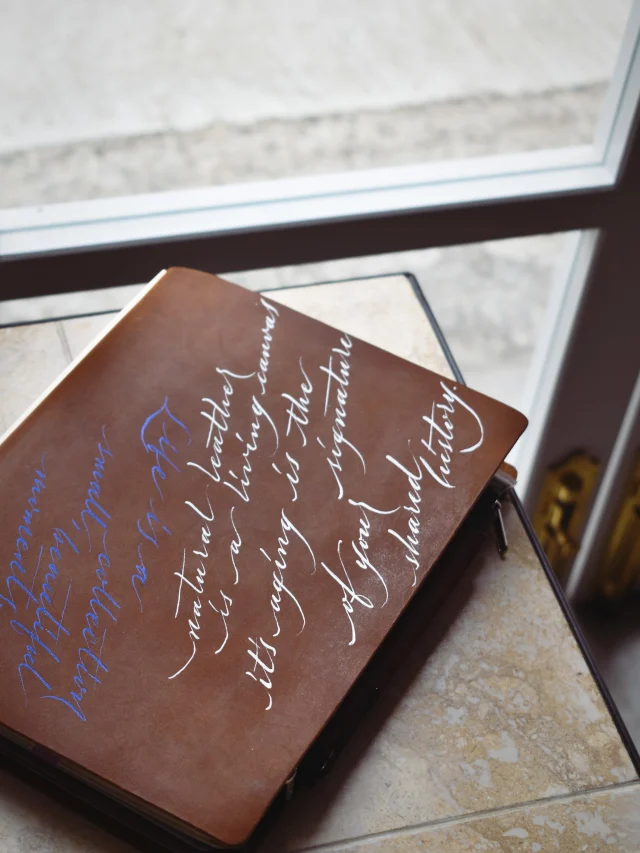 Life is a
collecting
small, beautiful
moments,
natural leather
is a living canvas
it's aging is the
signature
of your
shared history.